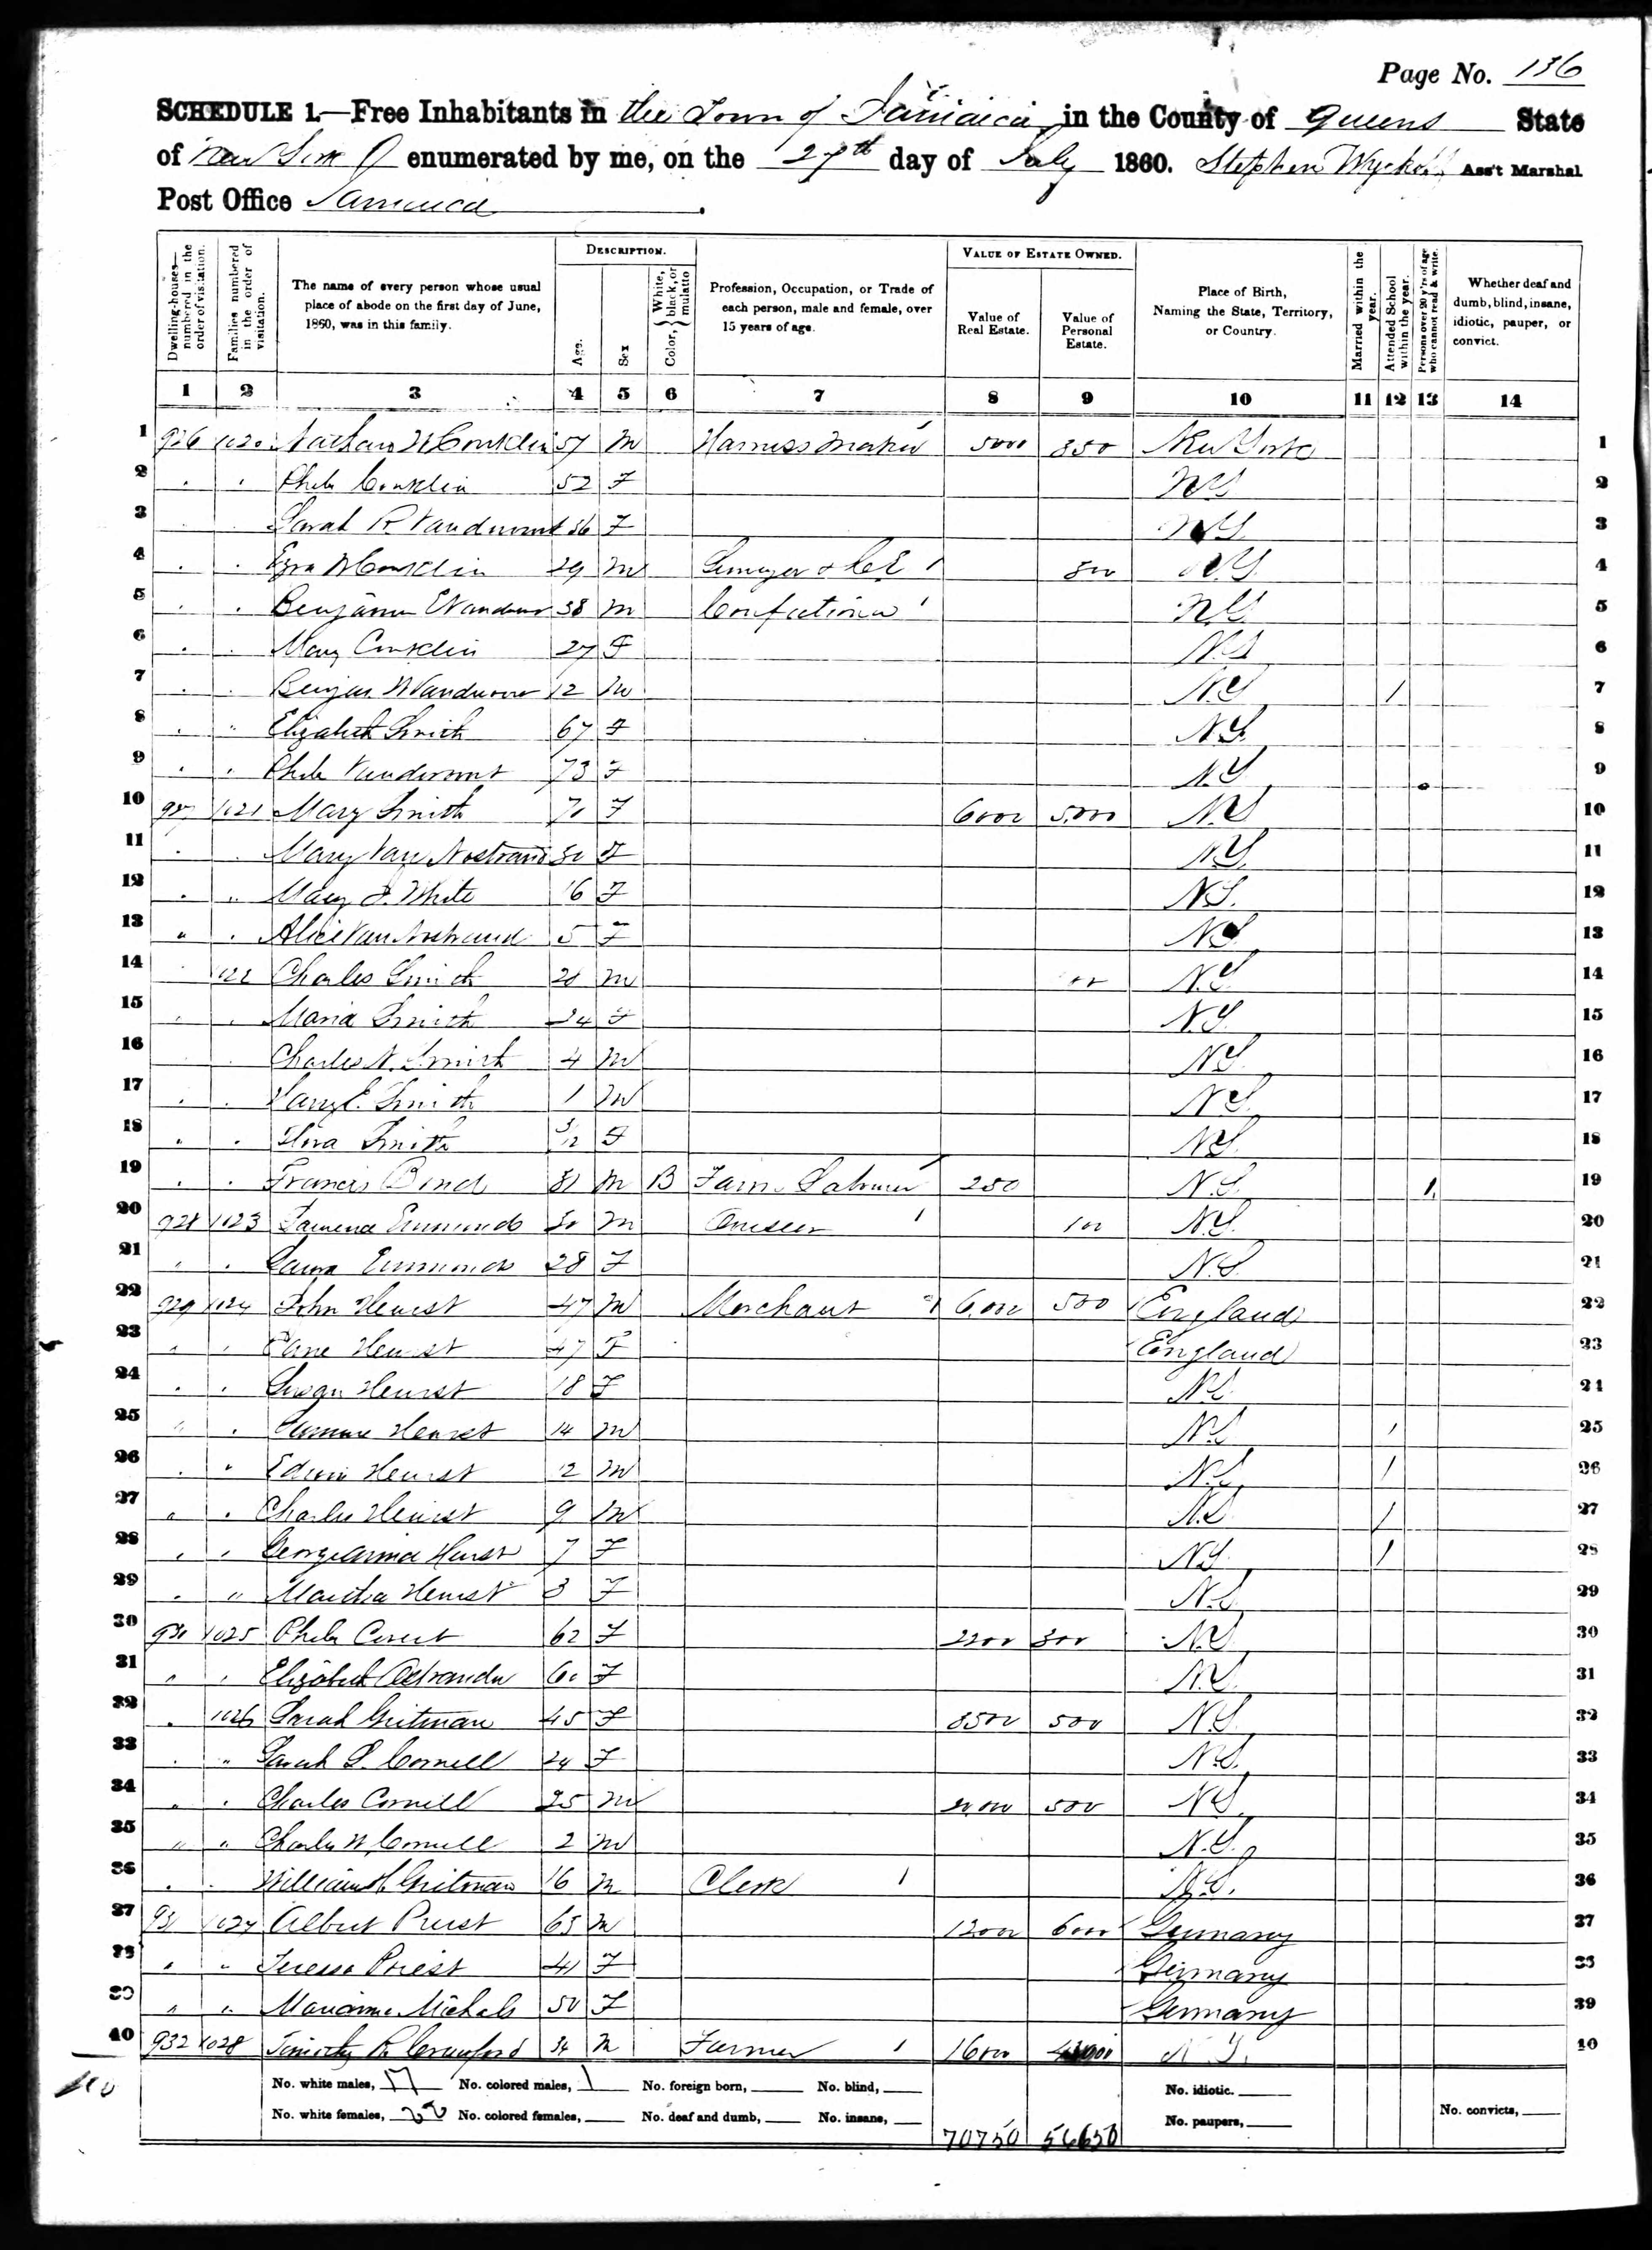 Page No. 136
SCHEDULE 1.—Free Inhabitants in the Town of Jamaica in the County of Queens State
of New York enumerated by me, on the 27th day of July 1860. Stephen Wyckoff Ass't Marshal
Post Office Jamaica
Dwelling-houses—numbered in the order of visitation. Families numbered in the order of visitation. The name of every person whose usual place of abode on the first day of June, 1860, was in this family. DESCRIPTION. Age. Sex Color, White, black, or mulatto Profession, Occupation, or Trade of each person, male and female, over 15 years of age. VALUE OF ESTATE OWNED. Value of Real Estate. Value of Personal Estate. Place of Birth, Naming the State, Territory, or Country. Married within the year. Attended School within the year. Persons over 20 y'rs of age who cannot read & write. Whether deaf and dumb, blind, insane, idiotic, pauper, or convict.
1 2 3 4 5 6 7 8 9 10 11 12 13 14
1 926 1020 Nathan W Conklin 57 M Harness Maker 5000 850 New York 1
2 " " Phebe Conklin 52 F N Y 2
3 " " Sarah R 36 F N Y 3
4 " " Ezra W Conklin 29 M & C E 1 800 N.Y. 4
5 " " Benjamin 38 M Confectioner 1 N.Y. 5
6 " " Mary Conklin 27 F N.Y. 6
7 " " 12 M N.Y 1 7
8 " " Elizabeth Smith 67 F N.Y. 8
9 " " Phebe 73 F N.Y 9
10 927 1021 Mary Smith 70 F 6000 5,000 N.Y 10
11 " " Mary Van Nostrand F N.Y. 11
12 " " Mary J. White 16 F N.Y. 12
13 " " Alice Van Nostrand 5 F N.Y. 13
14 1022 Charles Smith 28 M N.Y. 14
15 " " Maria Smith 24 F N.Y. 15
16 Charles N. Smith 4 M N.Y. 16
17 " " Harry E. Smith 1 M N.Y. 17
18 " " Flora Smith 3/12 F N.Y. 18
19 " " Francis Bond M B Farm Laborer 1 250 N.Y. 1 19
20 928 1023 Emmonds 30 M 1 100 N.Y. 20
21 " " Laura Emmonds 28 F N.Y. 21
22 929 1024 John Heurst 47 M Merchant 1 6,000 500 England 22
23 " " Jane Heurst 47 F England 23
24 " " Susan Heurst 18 F N.Y. 24
25 " " Heurst 14 M N.Y. 1 25
26 " " Edwin Heurst 12 M N.Y. 1 26
27 " " Charles Heurst 9 M N.Y. 1 27
28 " " Georgianna Hurst 7 F N.Y. 1 28
29 " " Martha Heurst 3 F N.Y. 29
30 930 1025 Phebe 62 F 2200 300 N.Y. 30
31 " " Elizabeth Ostrander 60 F N.Y. 31
32 " 1026 Sarah Gritman 45 F 8500 500 N.Y. 32
33 " " Sarah L. Cornell 24 F N.Y. 33
34 " " Charles Cornell 25 M 500 N.Y. 34
35 " " Charles W Cornell 2 M N.Y. 35
36 " " William H Gritman 16 M Clerk 1 N.Y. 36
37 931 1027 Albert Priest 65 M 12000 6000 Germany 37
38 " " Teresa Priest 41 F Germany 38
39 " " Marianna Michals 50 F Germany 39
40 932 1028 Timothy R. Crawford 34 M Farmer 1 16000 N.Y. 40
No. white males, 17 No. colored males, 1 No. foreign born, No. blind, No. idiotic.
No. white females, 22 No. colored females, No. deaf and dumb, No. insane, 70750 56650 No. paupers, No. convicts,